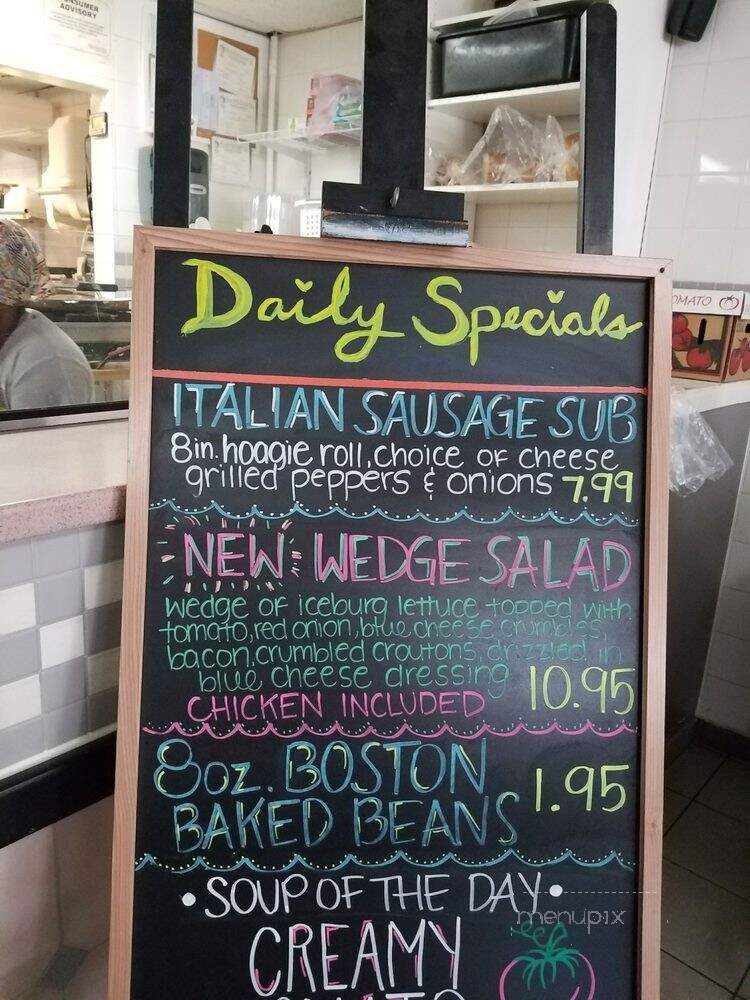 CONSUMER
ADVISORY
Daily Specials
ITALIAN SAUSAGE SUB
8in. hoagie roll, choice of cheese
grilled peppers & onions 7.99
NEW WEDGE SALAD
wedge of iceburg lettuce topped with
tomato, red onion, blue cheese crumbles,
bacon, crumbled croutons, drizzled in
blue cheese dressing 10.95
CHICKEN INCLUDED
8oz. BOSTON
BAKED BEANS 1.95
•SOUP OF THE DAY•
CREAMY
menupix